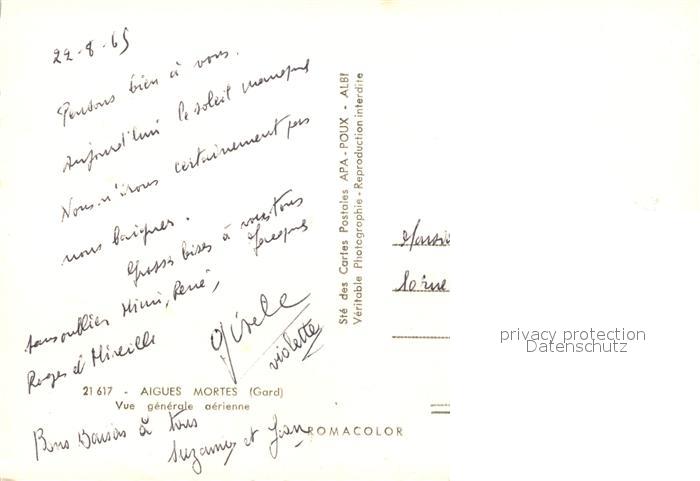 22-8-65
Pensons bien à vous.
Aujourd'hui le soleil manque
Nous n'irons certainement pas
nous baigner.
Grosses bises à vous tous
Jacques
sans oublier Mimi, René,
et Mireille
Gisèle
violette
21 617 - AIGUES MORTES (Gard)
Vue générale aérienne
Bons Baisers à tous
Suzanne et Jean
ROMACOLOR
Sté des Cartes Postales APA-POUX - ALBI
Véritable Photographie - Reproduction interdite
privacy protection
Datenschutz